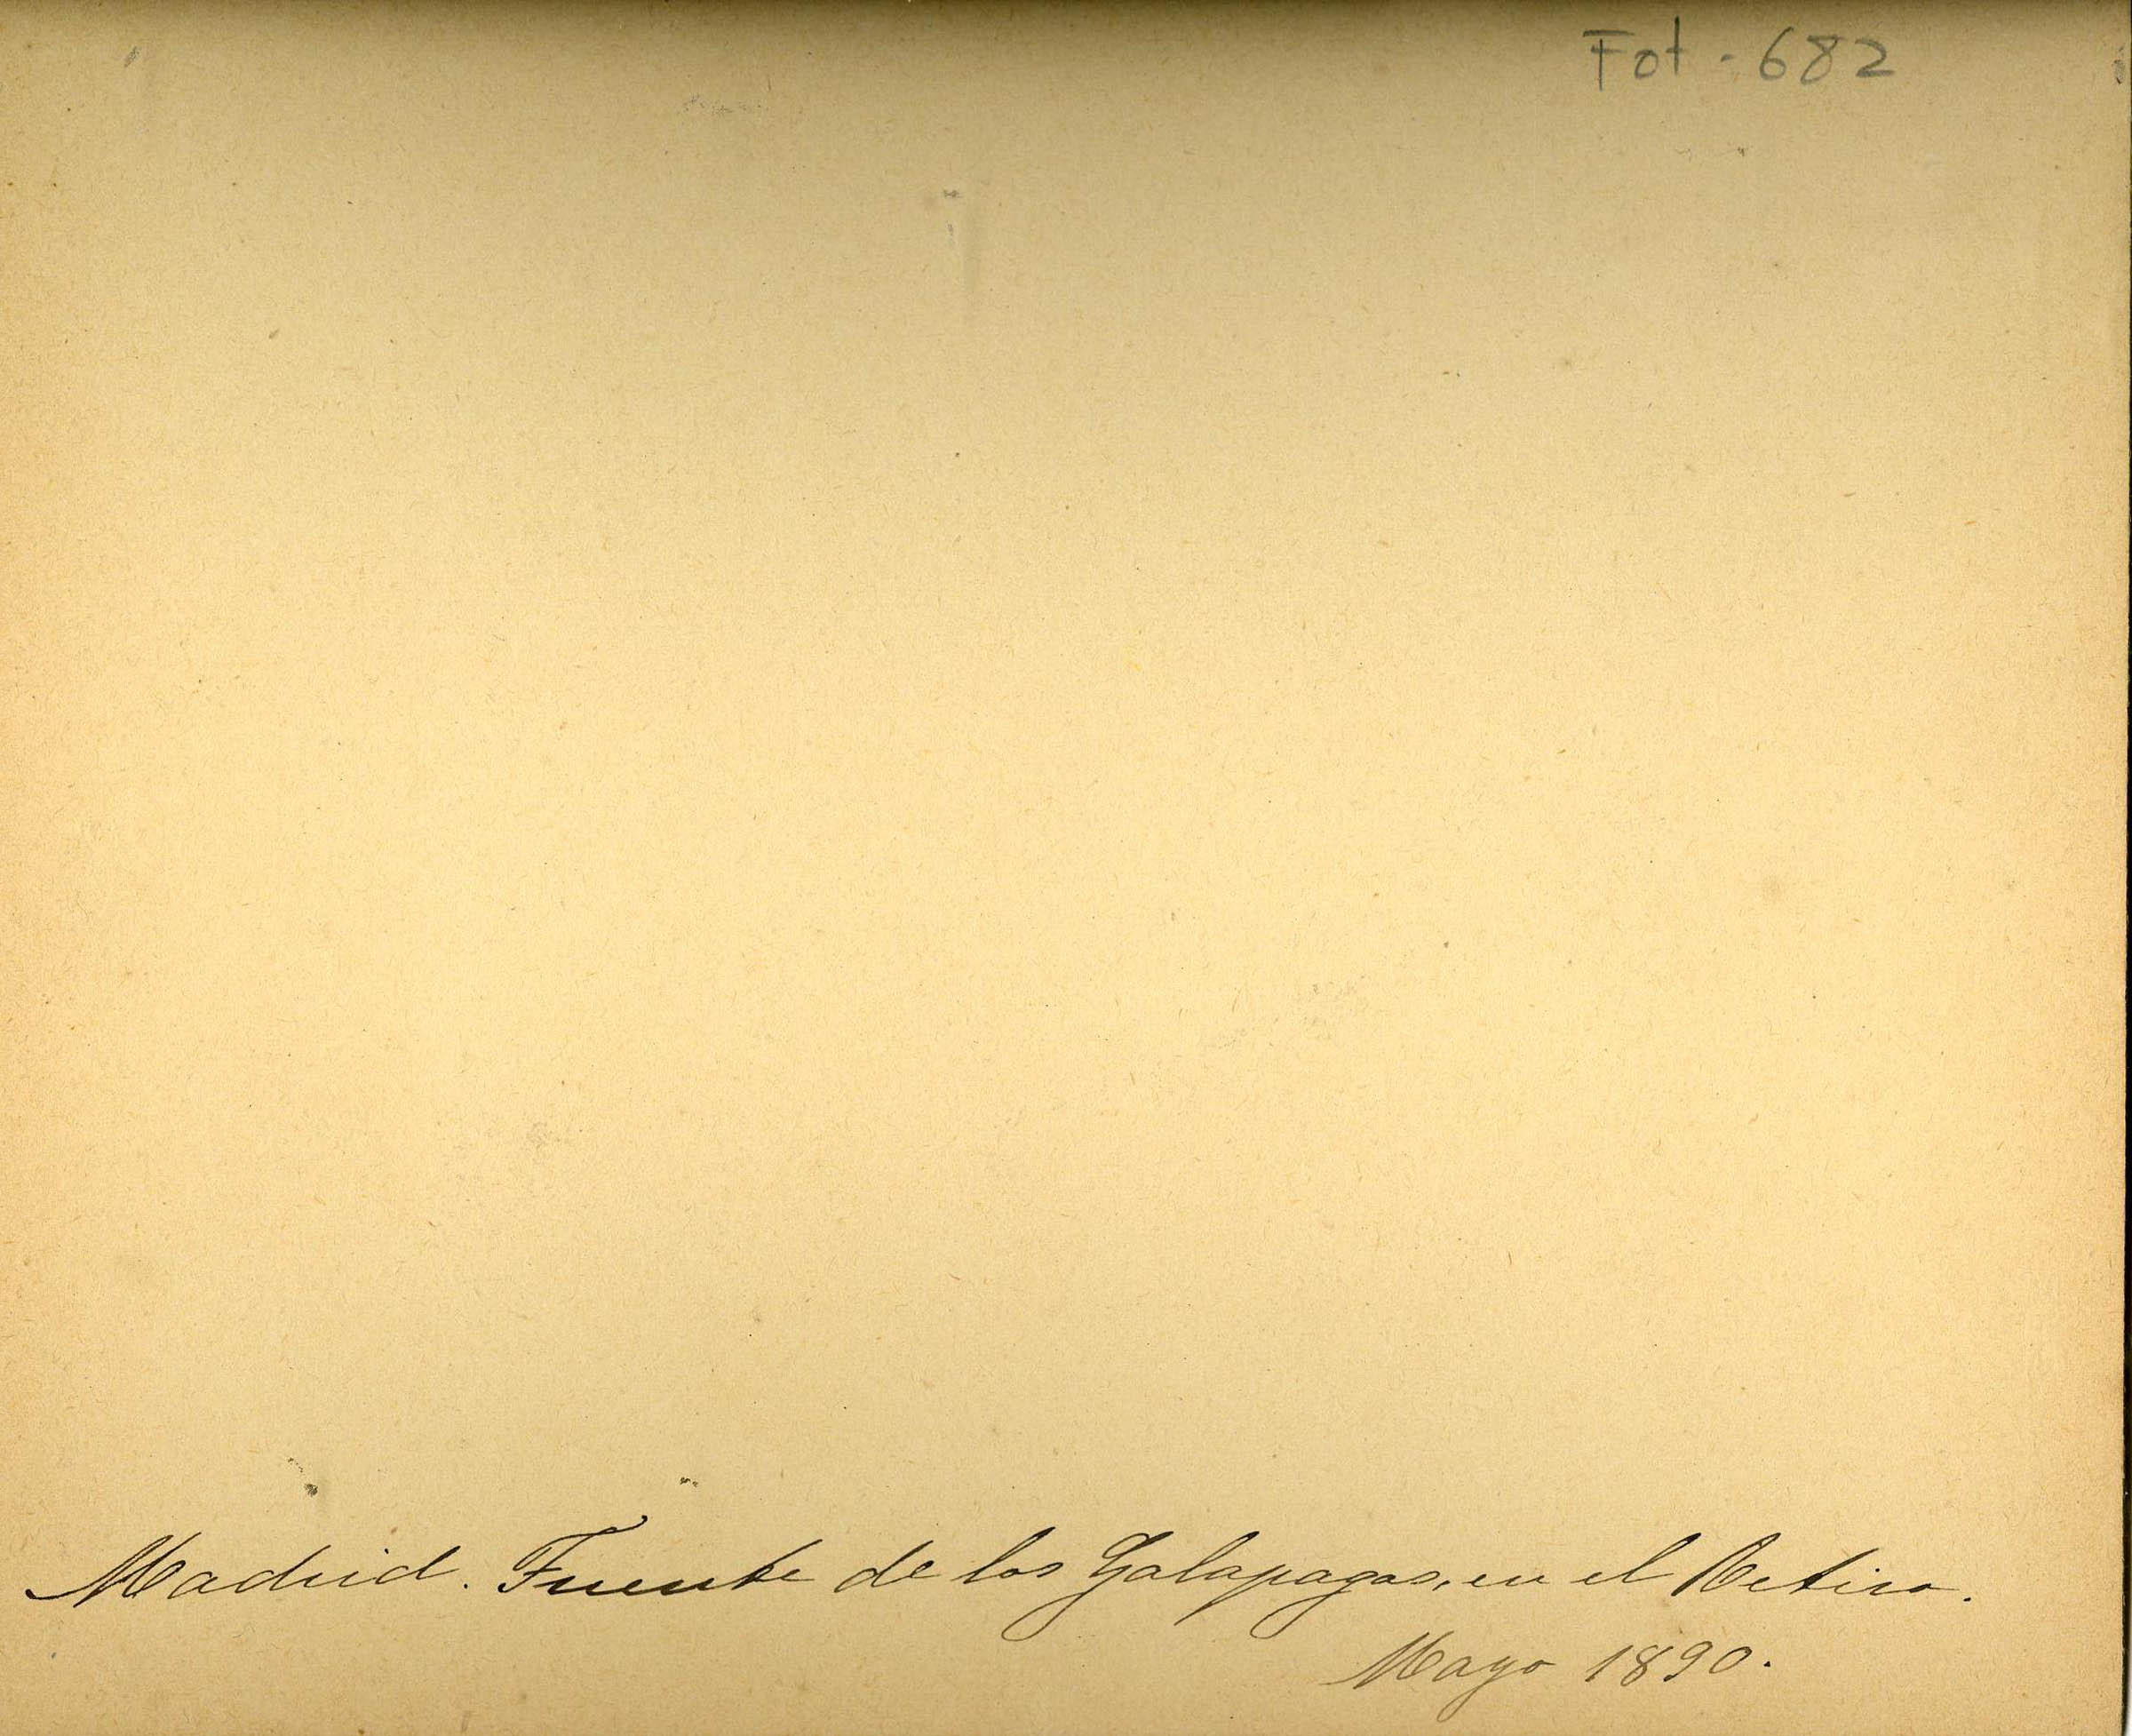 Fot - 682
Madrid. Fuente de los Galapagos, en el Retiro.
Mayo 1890.